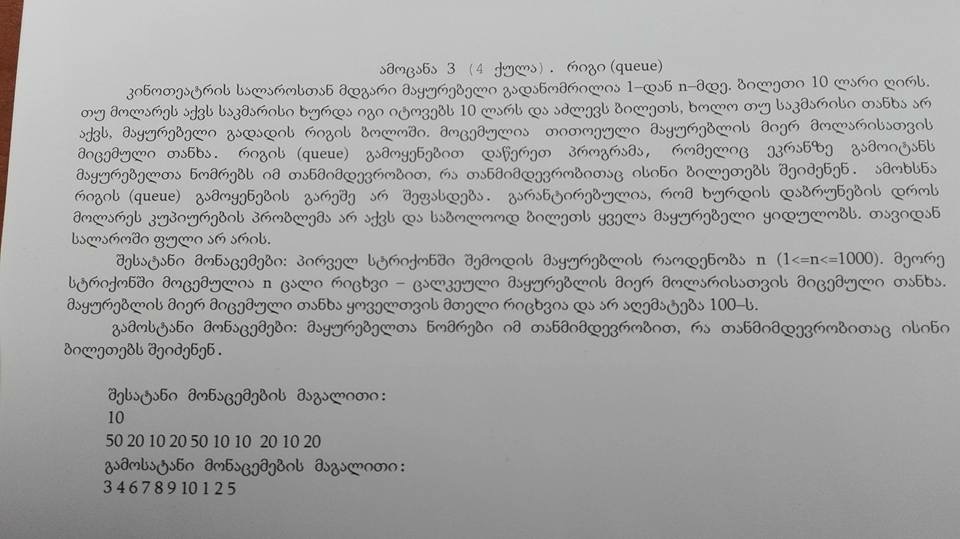 ამოცანა 3 (4 ქულა). რიგი (queue)
კინოთეატრის სალაროსთან მდგარი მაყურებელი გადანომრილია 1–დან n–მდე. ბილეთი 10 ლარი ღირს.
თუ მოლარეს აქვს საკმარისი ხურდა იგი იტოვებს 10 ლარს და აძლევს ბილეთს, ხოლო თუ საკმარისი თანხა არ
აქვს, მაყურებელი გადადის რიგის ბოლოში. მოცემულია თითოეული მაყურებლის მიერ მოლარისათვის
მიცემული თანხა. რიგის (queue) გამოყენებით დაწერეთ პროგრამა, რომელიც ეკრანზე გამოიტანს
მაყურებელთა ნომრებს იმ თანმიმდევრობით, რა თანმიმდევრობითაც ისინი ბილეთებს შეიძენენ. ამოხსნა
რიგის (queue) გამოყენების გარეშე არ შეფასდება. გარანტირებულია, რომ ხურდის დაბრუნების დროს
მოლარეს კუპიურების პრობლემა არ აქვს და საბოლოოდ ბილეთს ყველა მაყურებელი ყიდულობს. თავიდან
სალაროში ფული არ არის.
შესატანი მონაცემები: პირველ სტრიქონში შემოდის მაყურებლის რაოდენობა n (1<=n<=1000). მეორე
სტრიქონში მოცემულია n ცალი რიცხვი – ცალკეული მაყურებლის მიერ მოლარისათვის მიცემული თანხა.
მაყურებლის მიერ მიცემული თანხა ყოველთვის მთელი რიცხვია და არ აღემატება 100–ს.
გამოსტანი მონაცემები: მაყურებელთა ნომრები იმ თანმიმდევრობით, რა თანმიმდევრობითაც ისინი
ბილეთებს შეიძენენ.
შესატანი მონაცემების მაგალითი:
10
50 20 10 20 50 10 10 20 10 20
გამოსატანი მონაცემების მაგალითი:
3 4 6 7 8 9 10 1 2 5